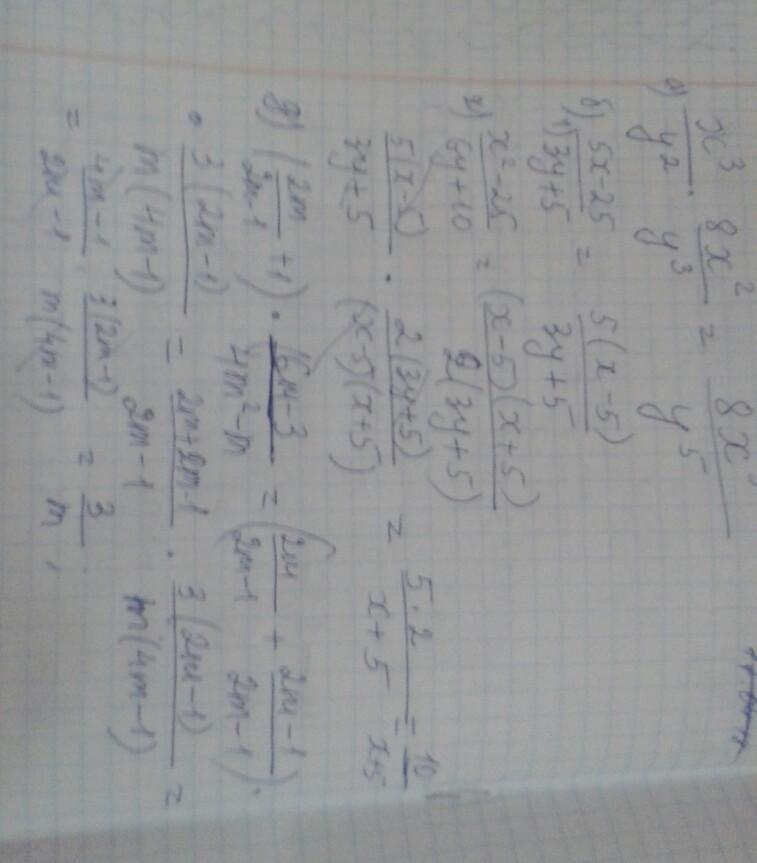 а) x³/y² · 8x²/y³ = 8x⁵/y⁵
б) 1) 5x-25/3y+5 = 5(x-5)/3y+5
2) x²-25/6y+10 = (x-5)(x+5)/2(3y+5)
5(x-5)/3y+5 · 2(3y+5)/(x-5)(x+5) = 5·2/x+5 = 10/x+5
(2m/2m-1 + 1) · 6m-3/4m²-m = (2m/2m-1 + 2m-1/2m-1) ·
· 3(2m-1)/m(4m-1) = 2m+2m-1/2m-1 · 3(2m-1)/m(4m-1) =
= 4m-1/2m-1 · 3(2m-1)/m(4m-1) = 3/m